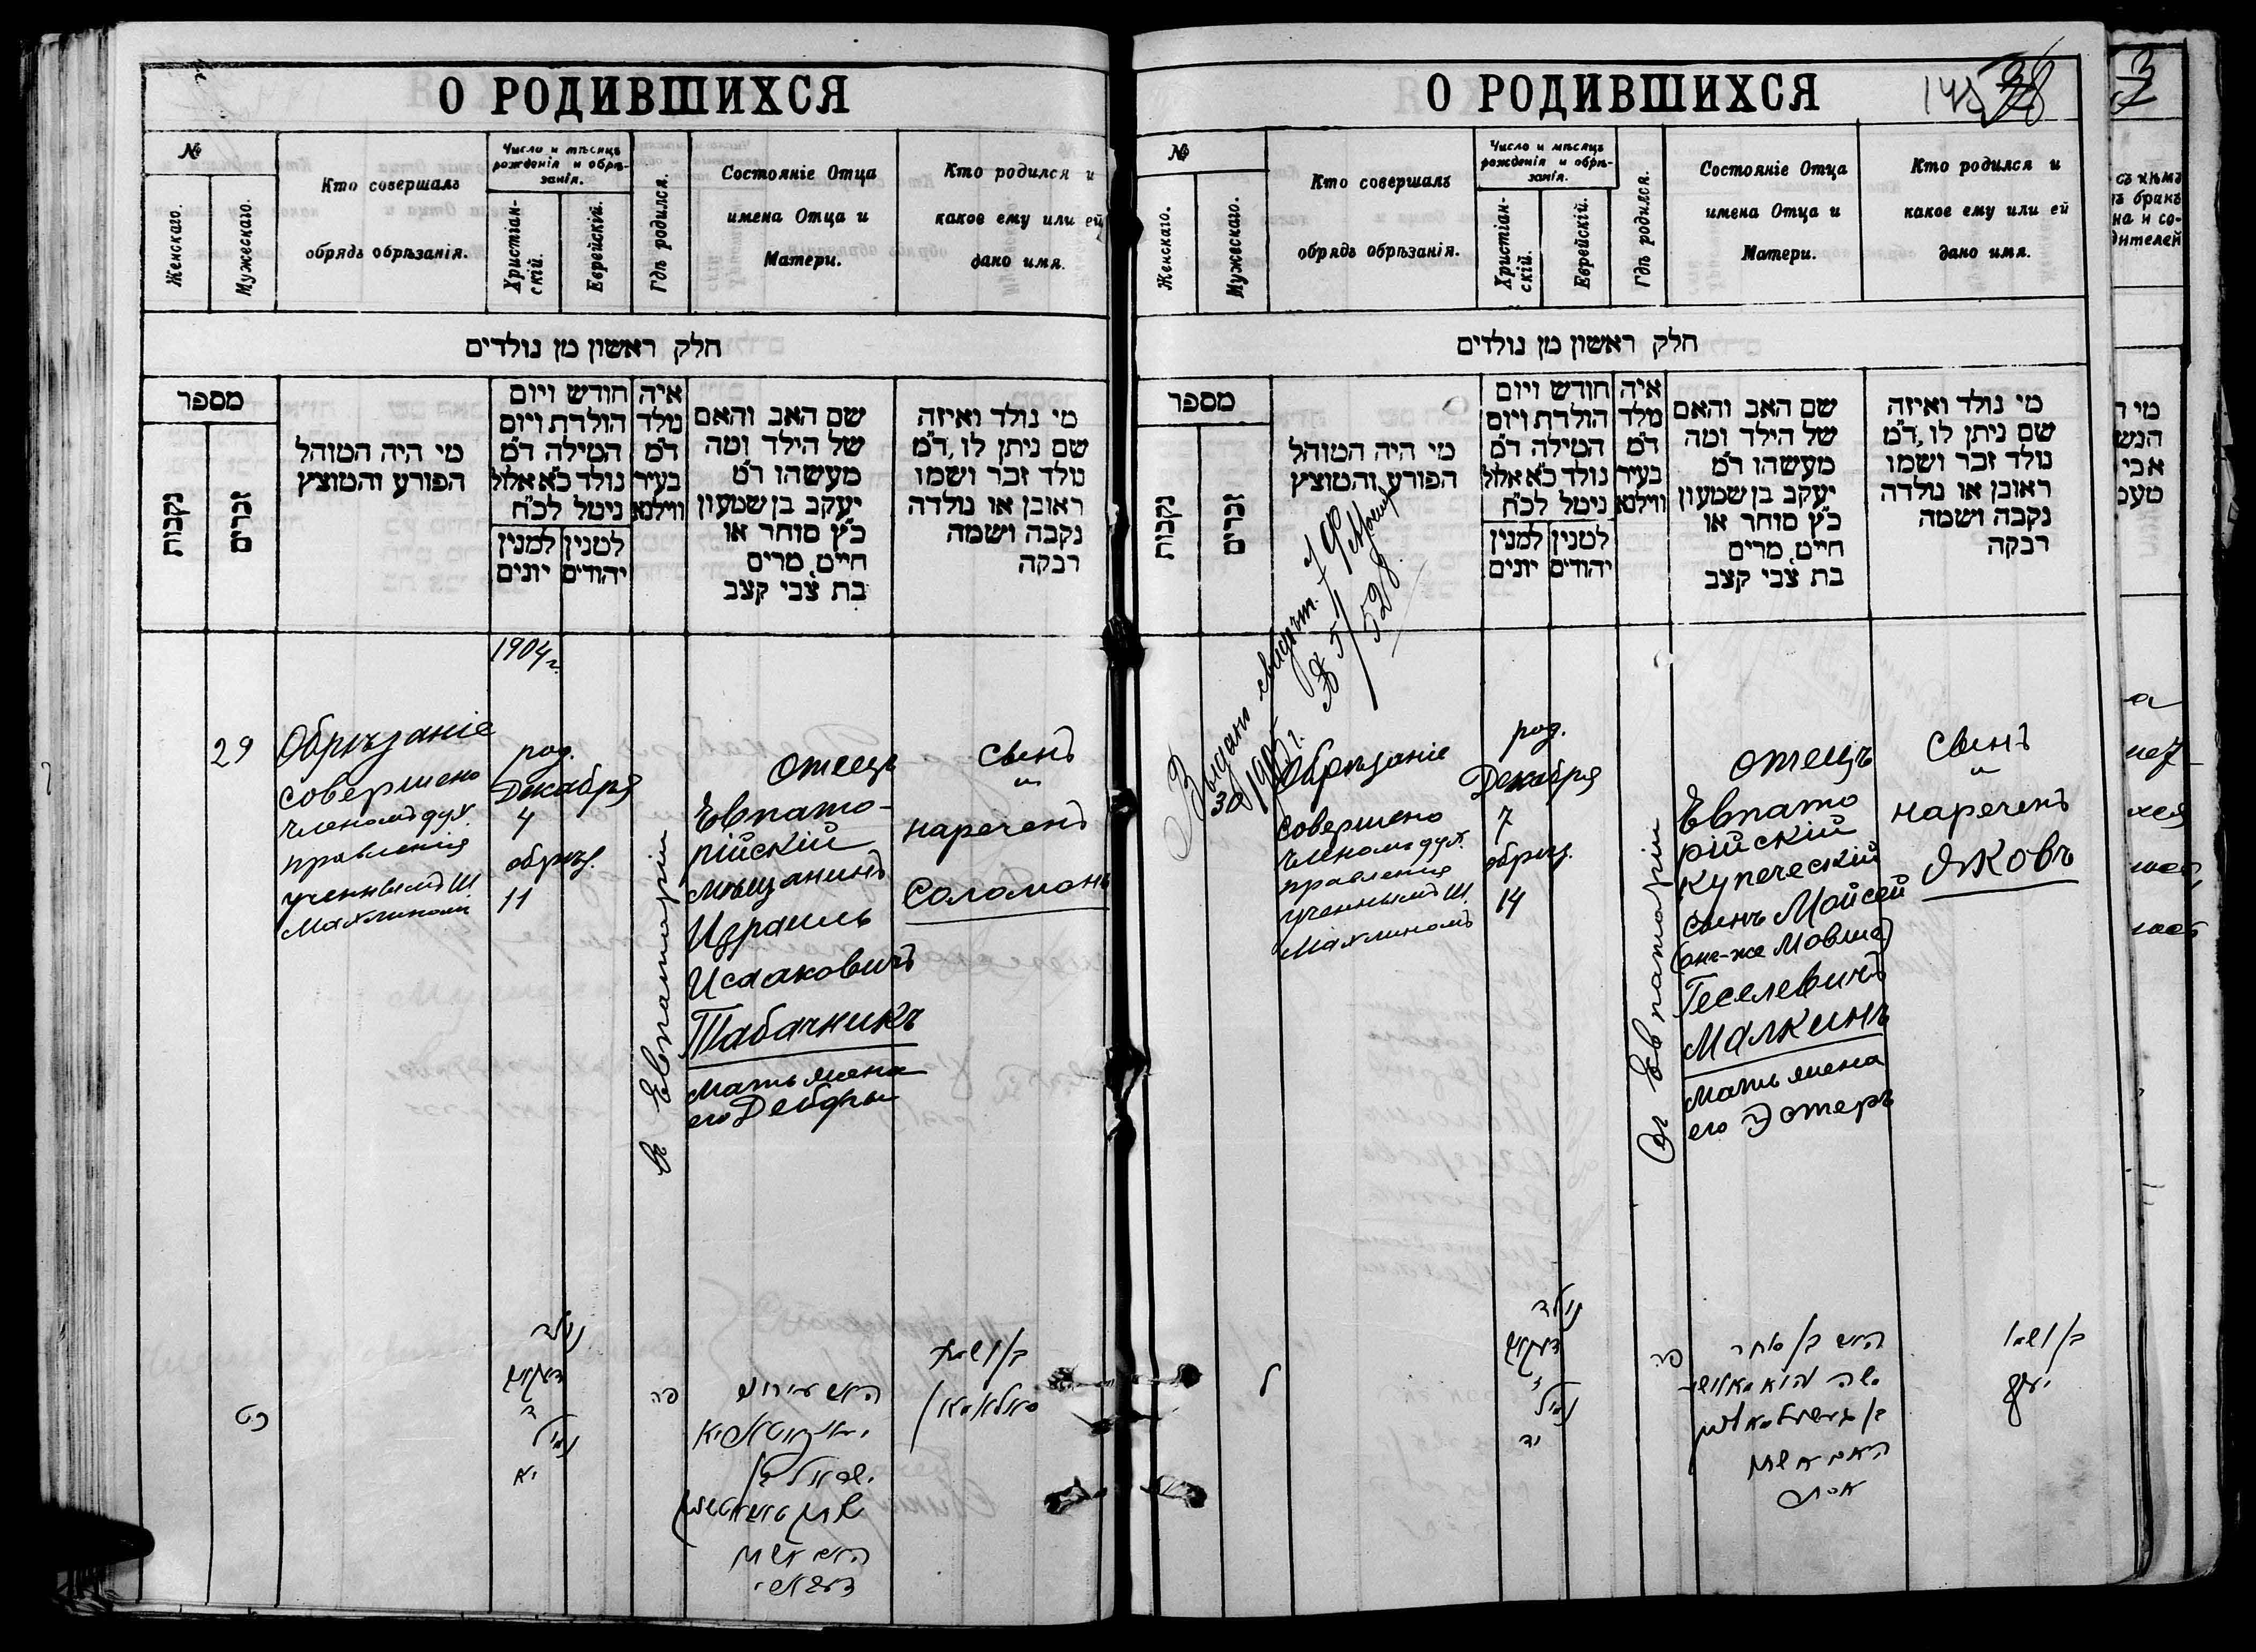 О РОДИВШИХСЯ
№
Женскаго.
Мужескаго.
Кто совершалъ
обрядъ обрѣзанія.
Число и мѣсяцъ
рожденія и обрѣ-
занія.
Христіан-
скій.
Еврейскій.
Гдѣ родился.
Состояніе Отца
имена Отца и
Матери.
Кто родился и
какое ему или ей
дано имя.
חלק ראשון מן נולדים
מספר
נקבות
זכרים
מי היה המוהל
הפורע והמוצץ
חודש ויום
הולדת ויום
המילה ד״מ
נולד כ״א אלול
ניטל לכ״ח
למנין למנין
יהודים יונים
איה
נולד
ד״מ
בעיר
ווילנא
שם האב והאם
של הילד ומה
מעשהו ד״מ
יעקב בן שמעון
כ״ץ סוחר או
חייט, מרים
בת צבי קצב
מי נולד ואיזה
שם ניתן לו, ד״מ
נולד זכר ושמו
ראובן או נולדה
נקבה ושמה
רבקה
1904 г.
29
Обрѣзаніе
совершено
членомъ дух.
правленія
ученнымъ Ш.
Махлиномъ
род.
Декабря
4
обрѣз.
11
въ Евпаторіи
отецъ
Евпато-
рійскій
мѣщанинъ
Израиль
Исааковичъ
Табачникъ
мать жена
его Дейфры
сынъ
и
нареченъ
Соломонъ
כט
נולד
דעקאב
ד
נמול
יא
פה
О РОДИВШИХСЯ
№
Женскаго.
Мужескаго.
Кто совершалъ
обрядъ обрѣзанія.
Число и мѣсяцъ
рожденія и обрѣ-
занія.
Христіан-
скій.
Еврейскій.
Гдѣ родился.
Состояніе Отца
имена Отца и
Матери.
Кто родился и
какое ему или ей
дано имя.
חלק ראשון מן נולדים
מספר
נקבות
זכרים
מי היה המוהל
הפורע והמוצץ
חודש ויום
הולדת ויום
המילה ד״מ
נולד כ״א אלול
ניטל לכ״ח
למנין למנין
יהודים יונים
איה
נולד
ד״מ
בעיר
ווילנא
שם האב והאם
של הילד ומה
מעשהו ד״מ
יעקב בן שמעון
כ״ץ סוחר או
חייט, מרים
בת צבי קצב
מי נולד ואיזה
שם ניתן לו, ד״מ
נולד זכר ושמו
ראובן או נולדה
נקבה ושמה
רבקה
Выдано свидѣт.
30
Обрѣзаніе
совершено
членомъ дух.
правленія
ученнымъ Ш.
Махлиномъ
род.
Декабря
7
обрѣз.
14
въ Евпаторіи
отецъ
Евпато
рійскій
купеческій
сынъ Мойсей
(онъ-же Мовша)
Геселевичъ
Малкинъ
мать жена
его Эстеръ
сынъ
и
нареченъ
Яковъ
ל
נולד
דעקאב
ז
נמול
יד
פה
האב בן סוחר
משה
האם אשתו
אסתר
בן ושמו
יעקב